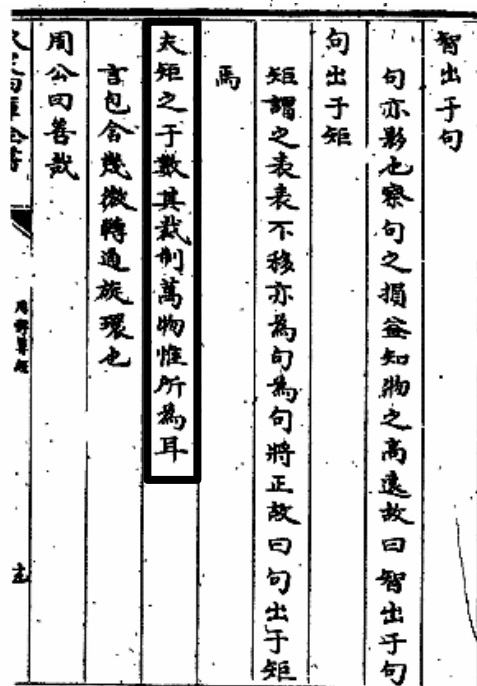 智出于句
句亦影也察句之損益知物之高遠故曰智出于句
句出于矩
矩謂之表表不移亦為句為句將正故曰句出于矩
焉
夫矩之于數其裁制萬物惟所為耳
言包含幾微轉通旋環也
周公曰善哉
周髀算經